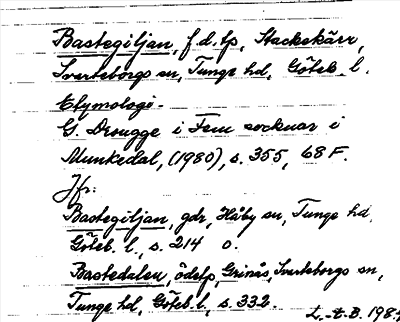 Bastegiljan, f.d. tp, Stackekärr,
Svarteborgs sn, Tunge hd, Göteb. l.
Etymologi.
G. Drougge i Fem socknar i
Munkedal, (1980), s. 355, 68 F.
Jfr:
Bastegiljan, gdr, Håby sn, Tunge hd.
Göteb. l., s. 214 o.
Bastedalen, ödetp, Grinås, Svarteborgs sn,
Tunge hd, Göteb. l, s. 332.
L.-E.B. 198